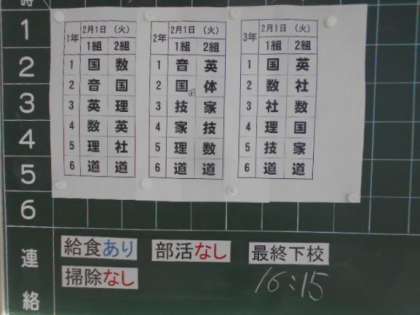 時
1
2
3
4
5
6
連絡
1年 2月1日 (火)
1組 2組
1 国 数
2 音 国
3 英 理
4 数 英
5 理 社
6 道 道
2年 2月1日 (火)
1組 2組
1 音 英
2 国 体
3 技 家
4 家 技
5 理 数
6 道 道
3年 2月1日 (火)
1組 2組
1 国 英
2 数 社
3 社 数
4 理 国
5 技 家
6 道 道
給食あり 部活なし 最終下校
掃除なし 16:15